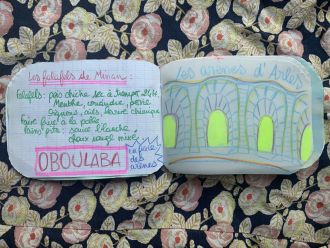 Les falafels de Minan :
Falafels : pois chiche sec à tremper 24H,
Menthe, coriandre, persil
Oignons, ails, levure chimique
Faire frire à la poêle
Pains pita : sauce blanche
choux rouge mixé
OBOULABA
en face
des
arènes
Les arènes d'Arles